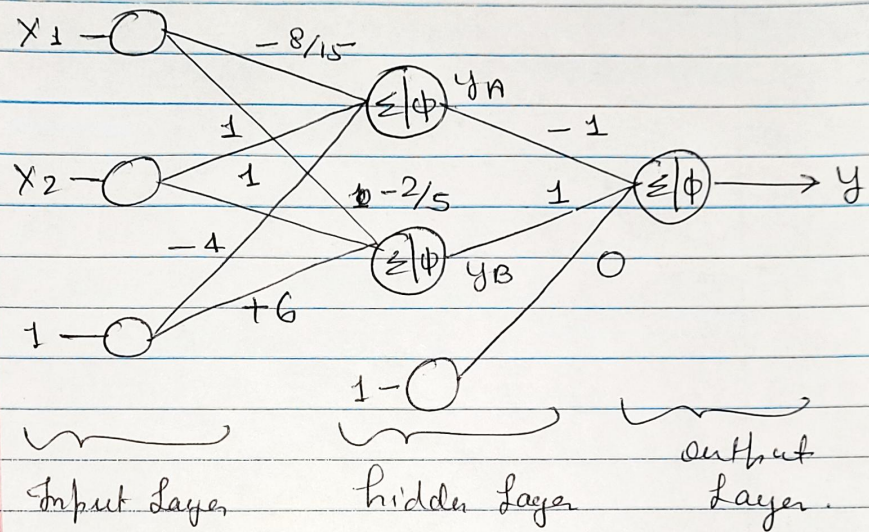 X1
-8/15
Σ|Φ
yA
1
-1
X2
1
-2/5
1
Σ|Φ
y
-4
Σ|Φ
yB
0
+6
1
1
Input Layer
hidden Layer
output
Layer.